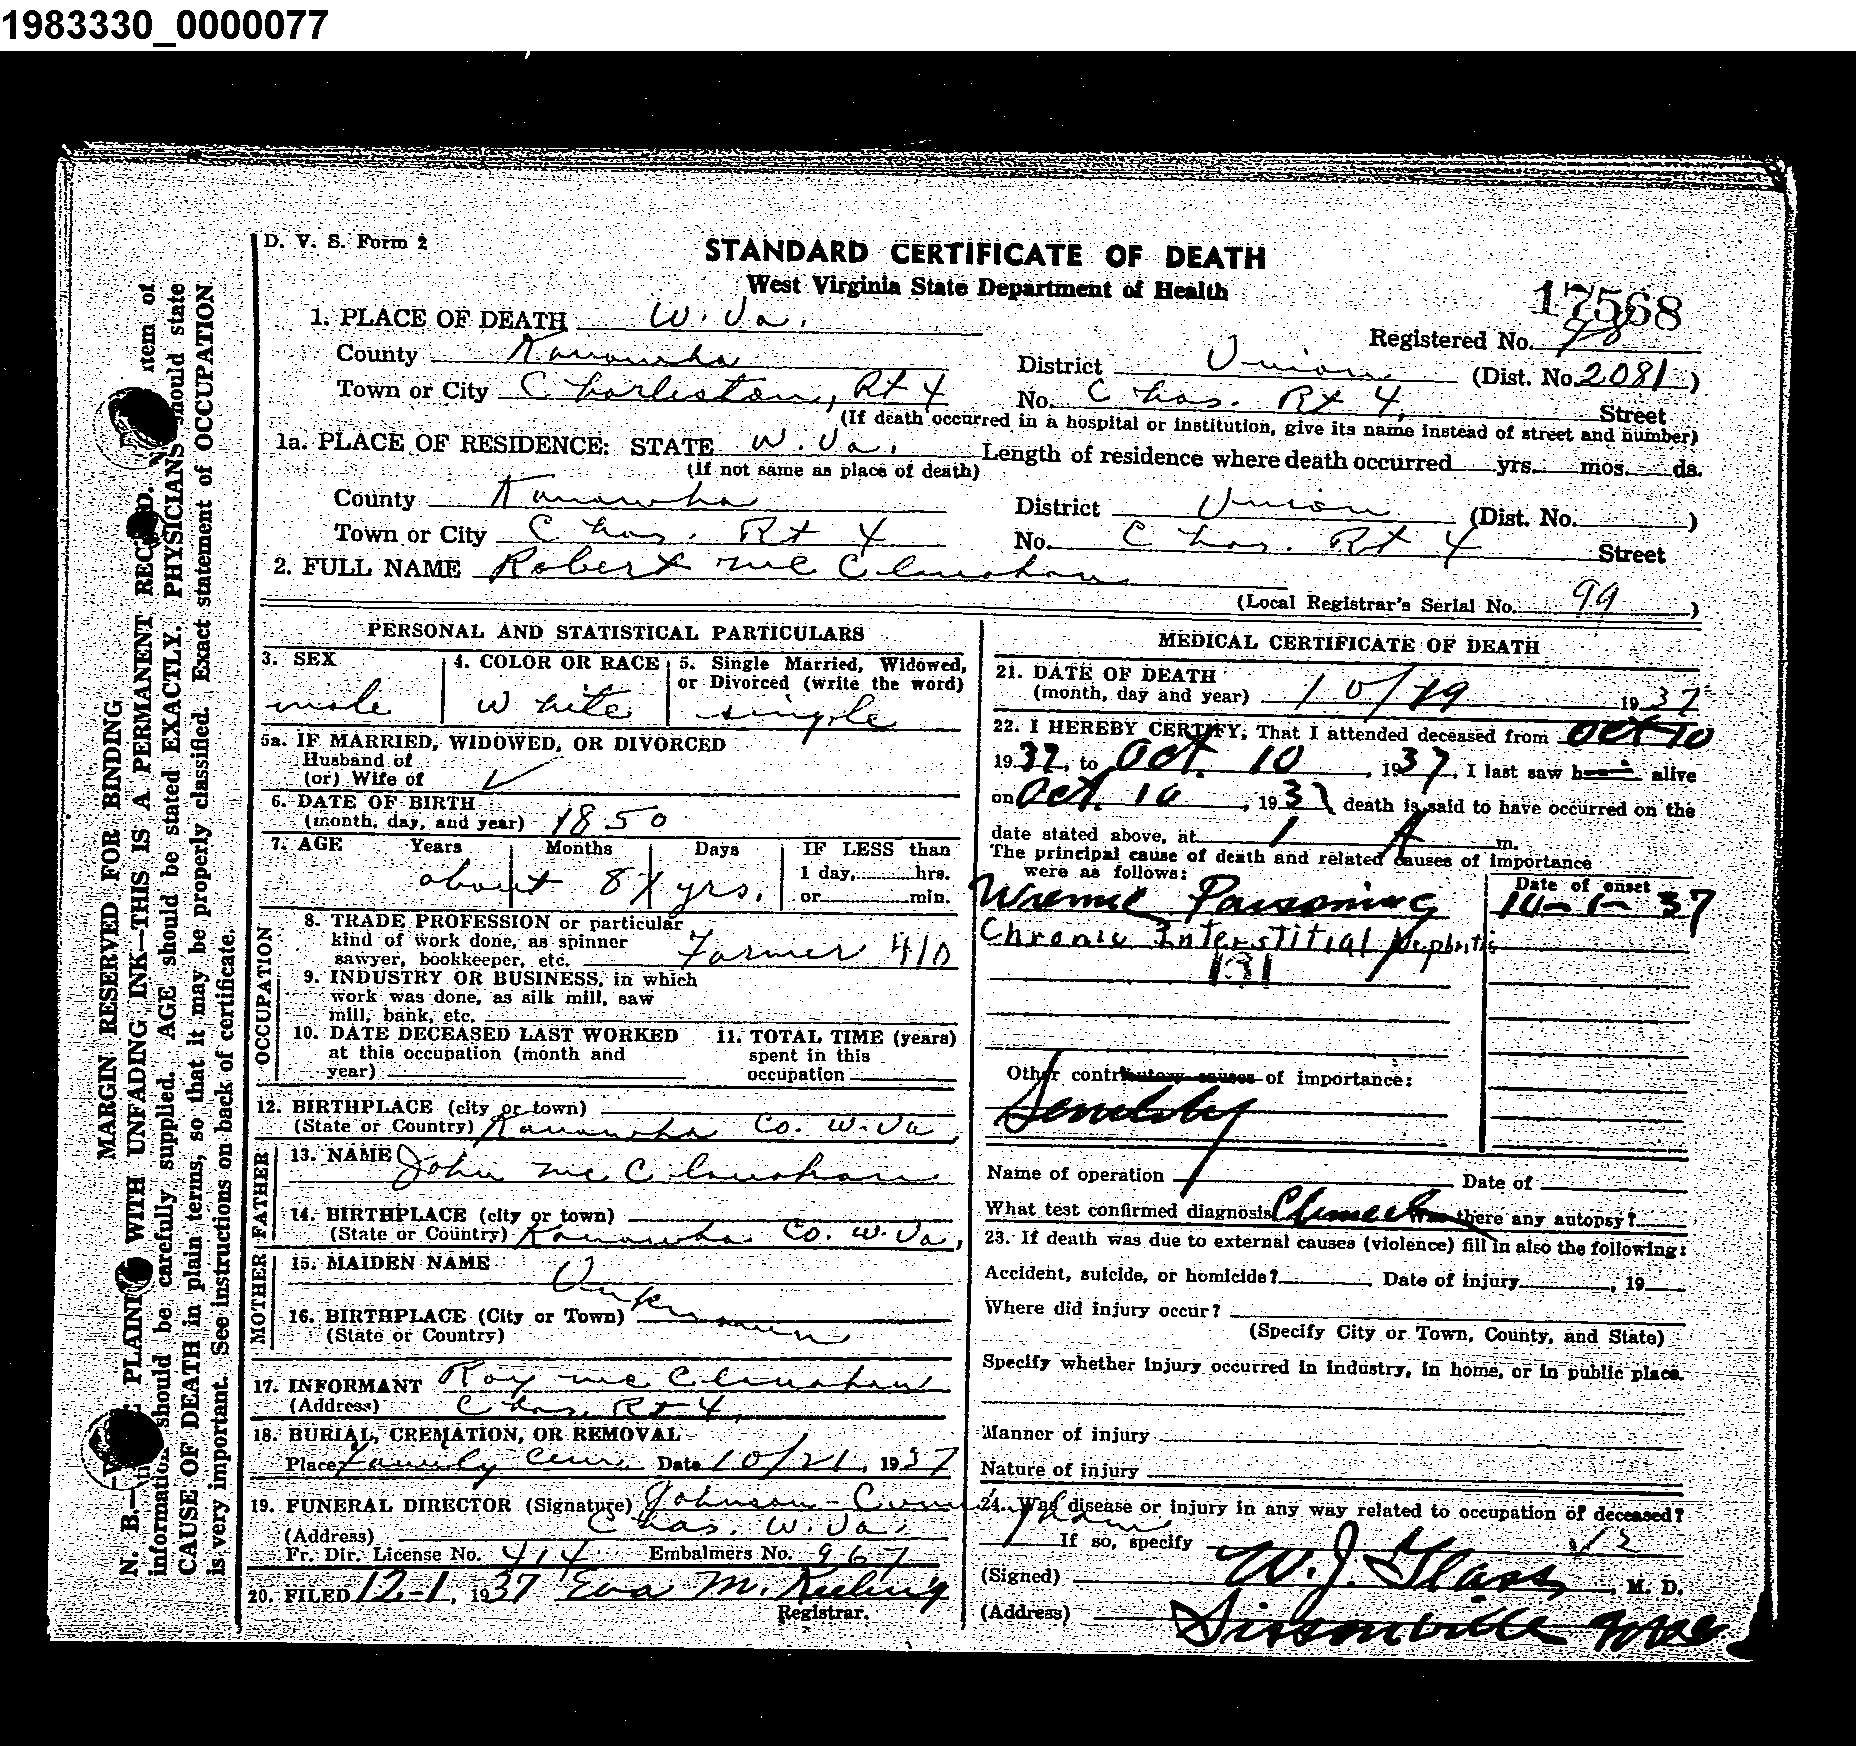 1983330_0000077
D. V. S. Form 2
STANDARD CERTIFICATE OF DEATH
West Virginia State Department of Health
17568
1. PLACE OF DEATH W. Va.
Registered No. 98
County Kanawha
District Union (Dist. No. 2081)
Town or City Charleston, Rt 4
No. Chas. Rt 4, Street
(If death occurred in a hospital or institution, give its name instead of street and number)
1a. PLACE OF RESIDENCE: STATE W. Va. Length of residence where death occurred yrs. mos. ds.
(If not same as place of death)
County Kanawha
District Union (Dist. No. )
Town or City Chas. Rt 4
No. Chas. Rt 4 Street
2. FULL NAME Robert Mc Clanahan
(Local Registrar's Serial No. 99 )
PERSONAL AND STATISTICAL PARTICULARS
3. SEX
male
4. COLOR OR RACE
White
5. Single Married, Widowed,
or Divorced (write the word)
single
5a. IF MARRIED, WIDOWED, OR DIVORCED
Husband of
(or) Wife of
6. DATE OF BIRTH
(month, day, and year) 1850
7. AGE Years Months Days
about 87 yrs.
IF LESS than
1 day, hrs.
or min.
OCCUPATION
8. TRADE PROFESSION or particular
kind of work done, as spinner
sawyer, bookkeeper, etc. Farmer 410
9. INDUSTRY OR BUSINESS, in which
work was done, as silk mill, saw
mill, bank, etc.
10. DATE DECEASED LAST WORKED
at this occupation (month and
year)
11. TOTAL TIME (years)
spent in this
occupation
12. BIRTHPLACE (city or town)
(State or Country) Kanawha Co. W. Va
FATHER
13. NAME John Mc Clanahan
14. BIRTHPLACE (city or town)
(State or Country) Kanawha Co. W. Va,
MOTHER
15. MAIDEN NAME
Unknown
16. BIRTHPLACE (City or Town)
(State or Country)
17. INFORMANT Roy Mc Clanahan
(Address) Chas. Rt 4,
18. BURIAL, CREMATION, OR REMOVAL
Place Family Cem. Date 10/21, 1937
19. FUNERAL DIRECTOR (Signature) Johnson-
(Address) Chas. W. Va.
Fr. Dir. License No. 414 Embalmers No. 967
20. FILED 12-1, 1937 Eva M. Keeling
Registrar.
MEDICAL CERTIFICATE OF DEATH
21. DATE OF DEATH
(month, day and year) 10/19 1937
22. I HEREBY CERTIFY, That I attended deceased from Oct 10
1937, to Oct. 10, 1937, I last saw h alive
on Oct. 10, 1937 death is said to have occurred on the
date stated above, at 1 A m.
The principal cause of death and related causes of importance
were as follows:
Date of onset
Uremic Poisoning 10-1-37
Chronic Interstitial Nephritis
131
Other contributory causes of importance:
Senility
Name of operation Date of
What test confirmed diagnosis Clinical Was there any autopsy?
23. If death was due to external causes (violence) fill in also the following:
Accident, suicide, or homicide? Date of injury , 19
Where did injury occur?
(Specify City or Town, County, and State)
Specify whether injury occurred in industry, in home, or in public place.
Manner of injury
Nature of injury
24. Was disease or injury in any way related to occupation of deceased?
If so, specify
(Signed) W. J. Glass, M. D.
(Address) Sissonville
MARGIN RESERVED FOR BINDING
WITH UNFADING INK—THIS IS A PERMANENT
N. B.— PLAIN
item of
information should be carefully supplied. AGE should be stated EXACTLY. PHYSICIANS should state
CAUSE OF DEATH in plain terms, so that it may be properly classified. Exact statement of OCCUPATION
is very important. See instructions on back of certificate.